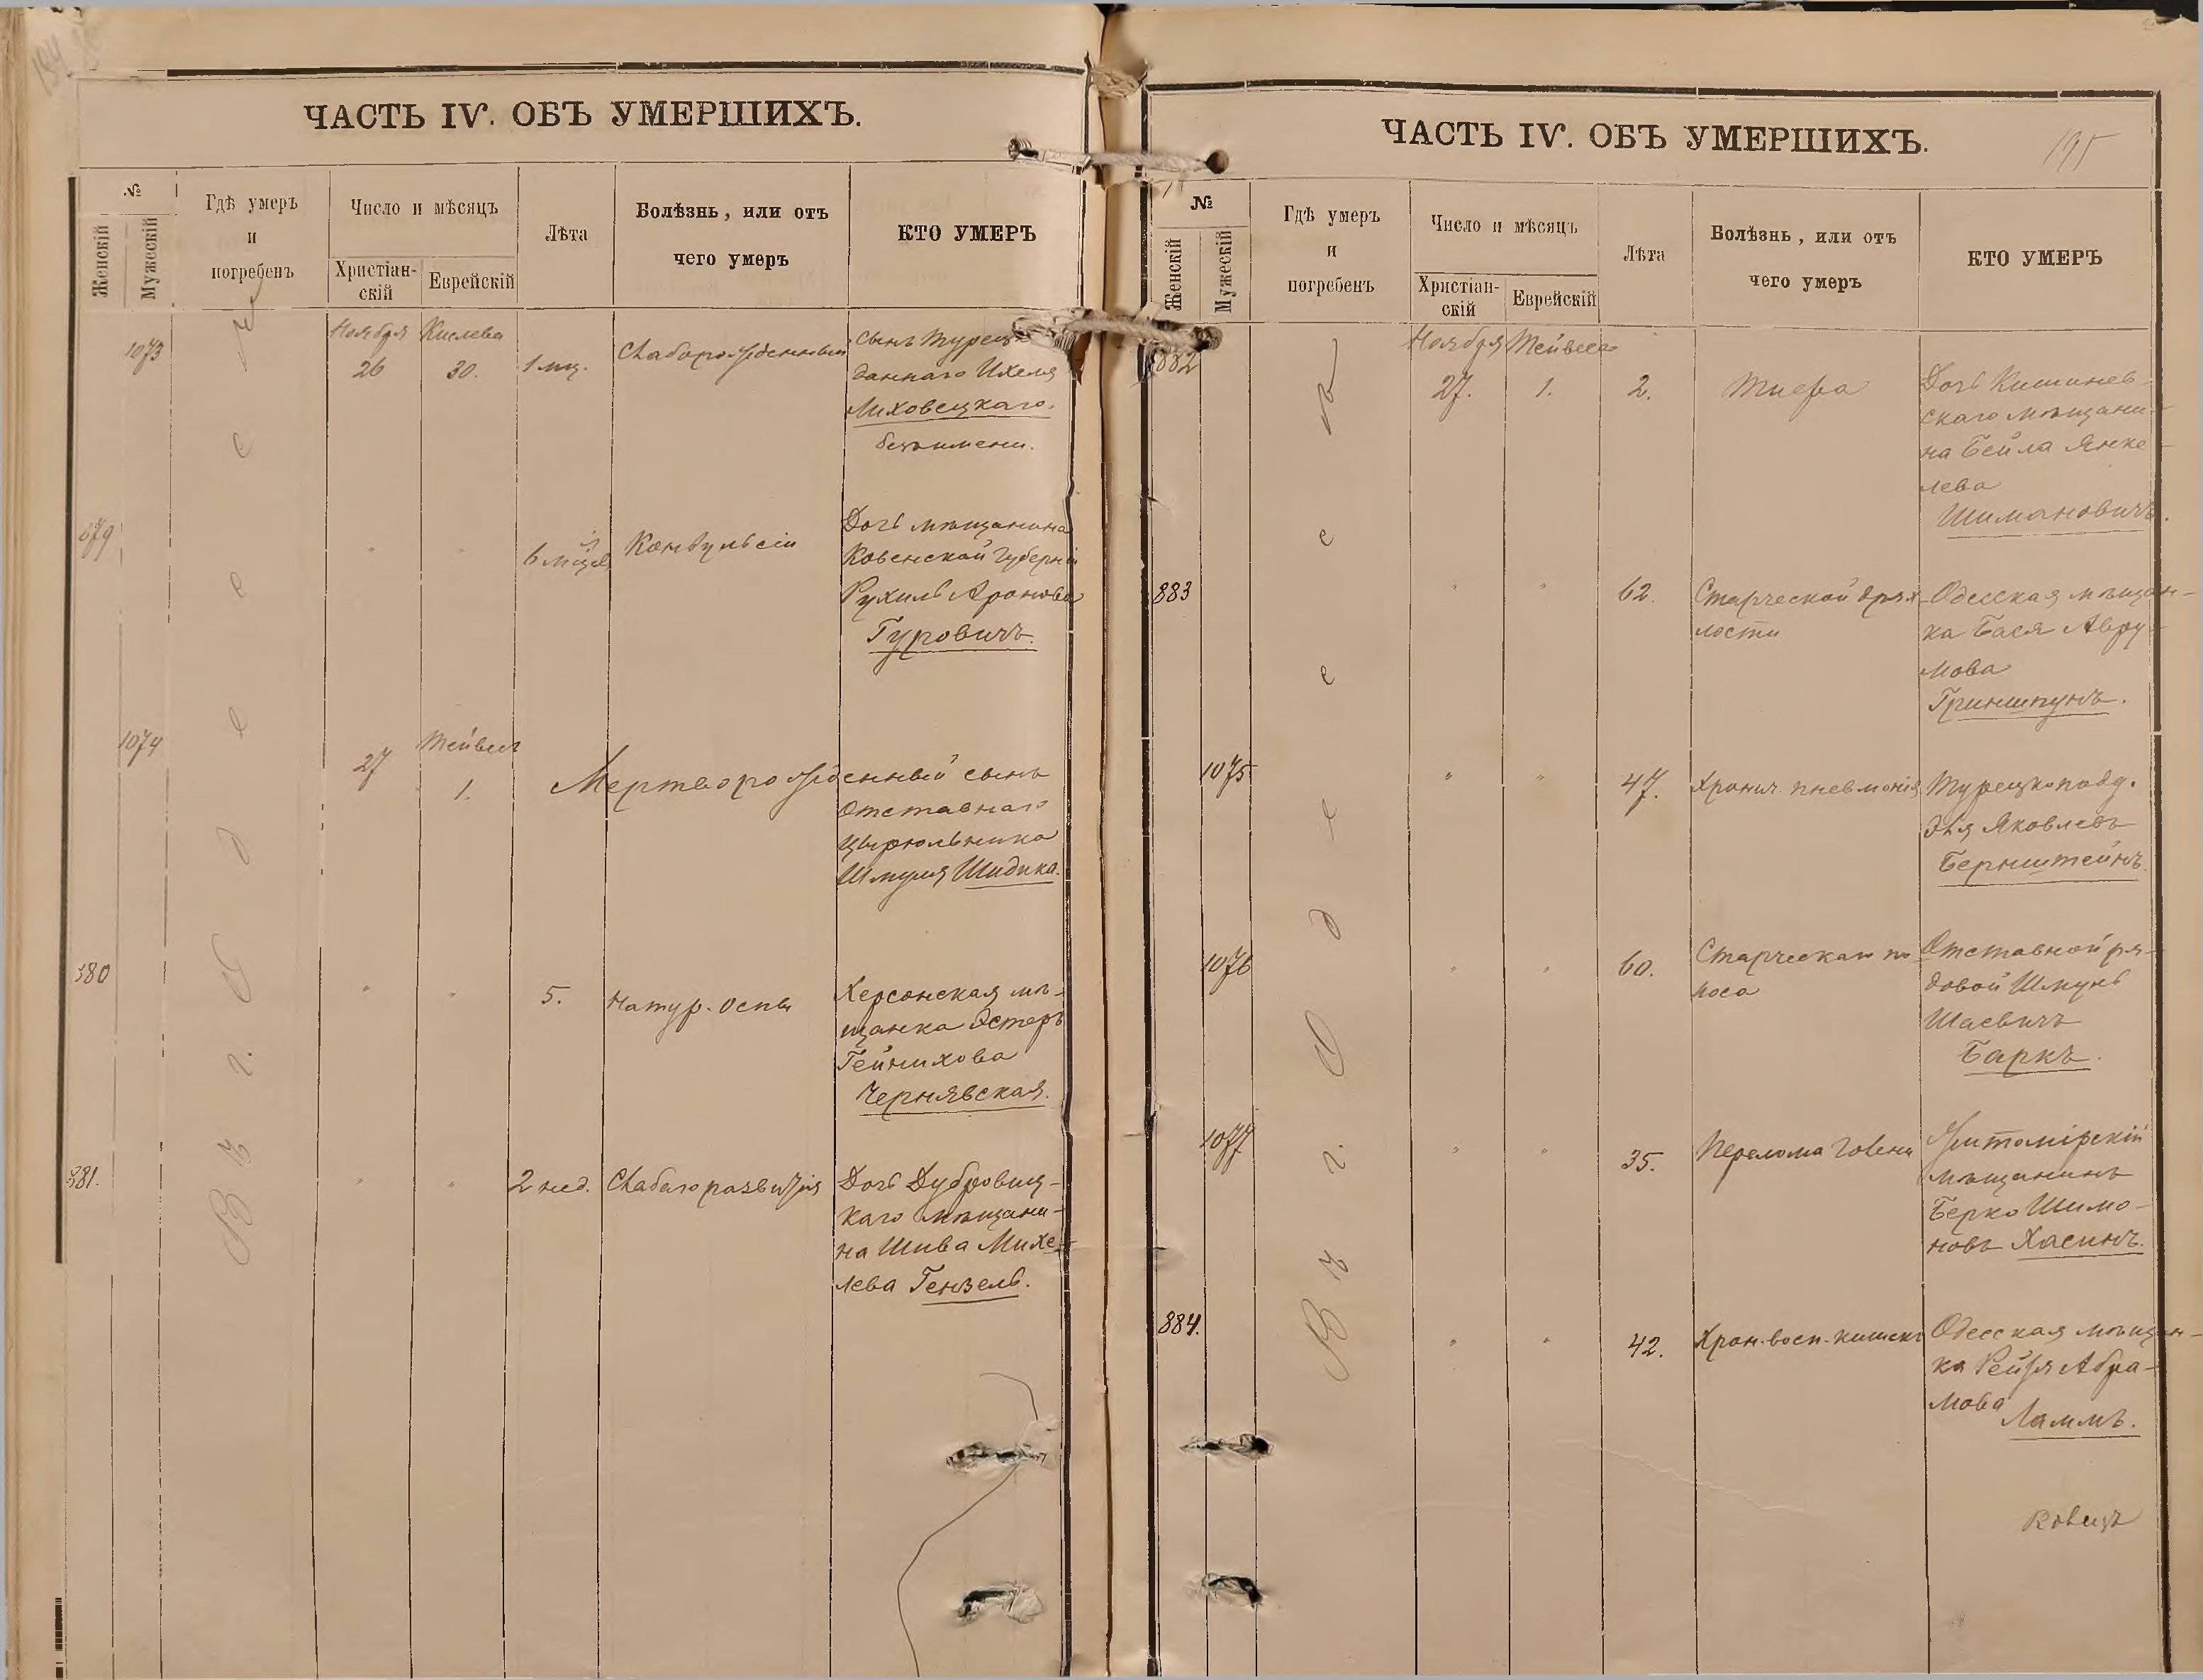 ЧАСТЬ IV. ОБЪ УМЕРШИХЪ.
№
Женскій
Мужескій
Гдѣ умеръ
и
погребенъ
Число и мѣсяцъ
Христіан-
скій
Еврейскій
Лѣта
Болѣзнь, или отъ
чего умеръ
КТО УМЕРЪ
Въ г. Одессе
1073
Ноября Кислева
26 30.
1 мц.
Слаборожденный
Сынъ Турец
даннаго Ихеля
Миховецкаго.
безъ имени.
879
6 м-цев
Конвульсіи
Дочь мѣщанина
Ковенской губерніи
Рухиль Аронова
Гуровичъ.
1074
27
Тейвес
1.
Мертворожденный сынъ
Отставнаго
Цырюльника
Шмуля Шидика.
880
5.
Натур. Оспы
Херсонская мѣ-
щанка Эстеръ
Гейнихова
Чернявская.
881.
2 нед.
Слабаго развитія
Дочь Дубровиц-
каго мѣщани-
на Шива Михе-
лева Гензель.
ЧАСТЬ IV. ОБЪ УМЕРШИХЪ.
195
№
Женскій
Мужескій
Гдѣ умеръ
и
погребенъ
Число и мѣсяцъ
Христіан-
скій
Еврейскій
Лѣта
Болѣзнь, или отъ
чего умеръ
КТО УМЕРЪ
Въ г. Одессе
882
Ноября Тейвеса
27. 1.
2.
Тифа
Дочь Кишинев-
скаго мѣщани-
на Бейла Янке
лева
Шимановичъ.
883
62.
Старческой дрях-
лости
Одесская мѣщан-
ка Бася Авру-
мова
Гриншпунъ.
1075
47.
Хронич. пневмонія
Турецкопод.
Эля Яковлевъ
Бернштейнъ.
1076
60.
Старческаго по-
носа
Отставной ря-
довой Шмуль
Шаевичъ
Баркъ.
1077
35.
Перелома голени
Житомірскій
мѣщанинъ
Берко Шимо-
новъ Хасинъ.
884.
42.
Хрон. восп. кишекъ
Одесская мѣщан-
ка Рейзя Абра-
мова
Ламмъ.